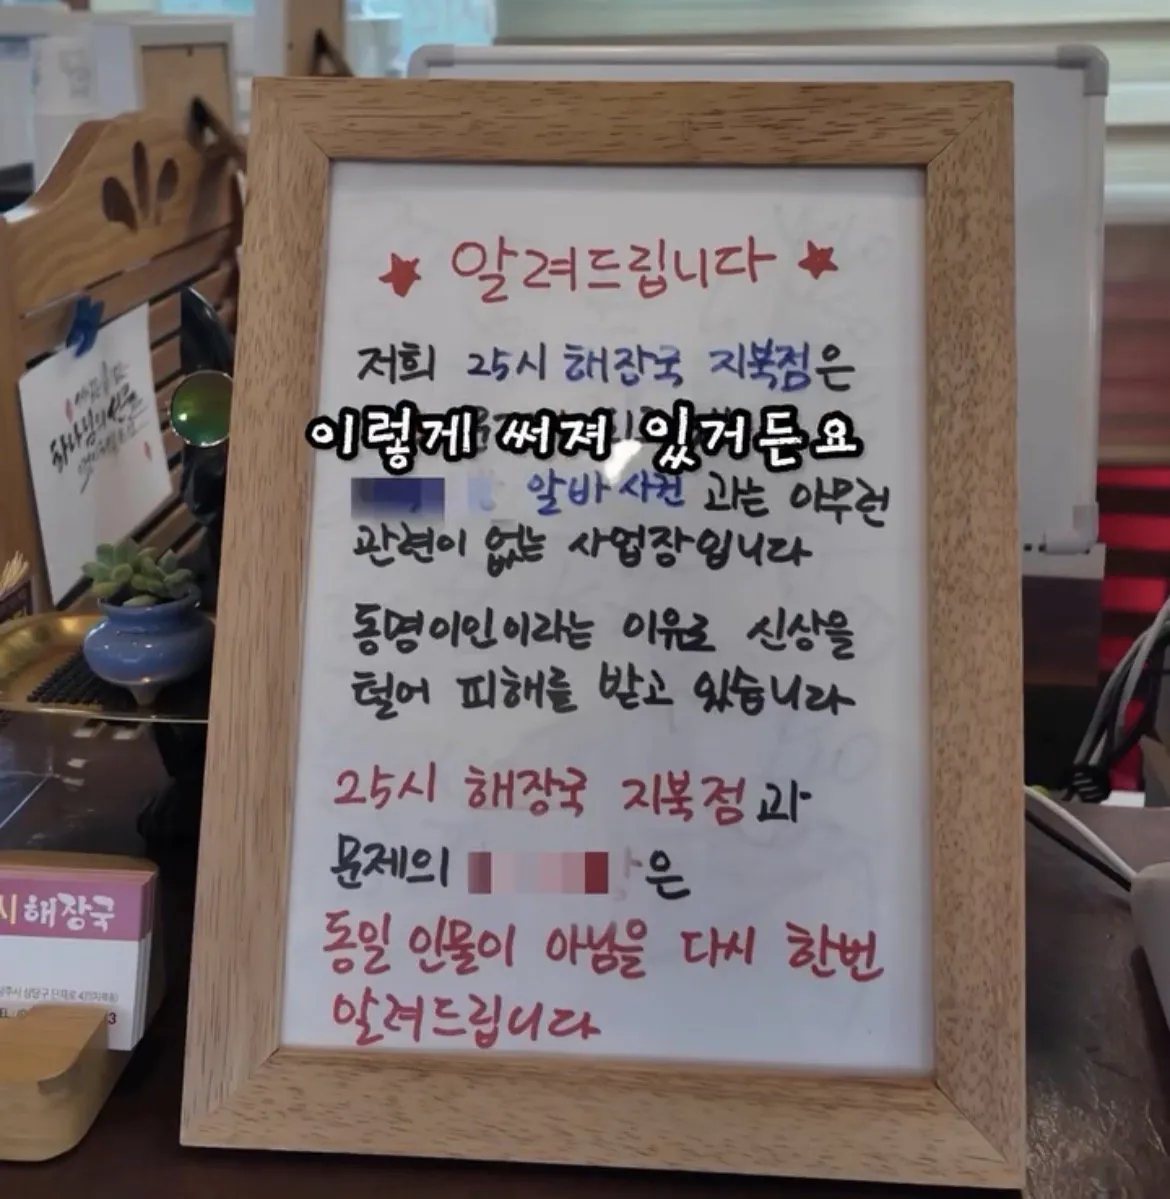 알려드립니다
저희 25시 해장국 지북점은
이렇게 써져 있거든요
알바 사건 과는 아무런
관련이 없는 사업장입니다
동명이인이라는 이유로 신상을
털어 피해를 받고 있습니다
25시 해장국 지북점과
문제의 은
동일 인물이 아님을 다시 한번
알려드립니다
하나님의
시 해장국
상당구 단재로